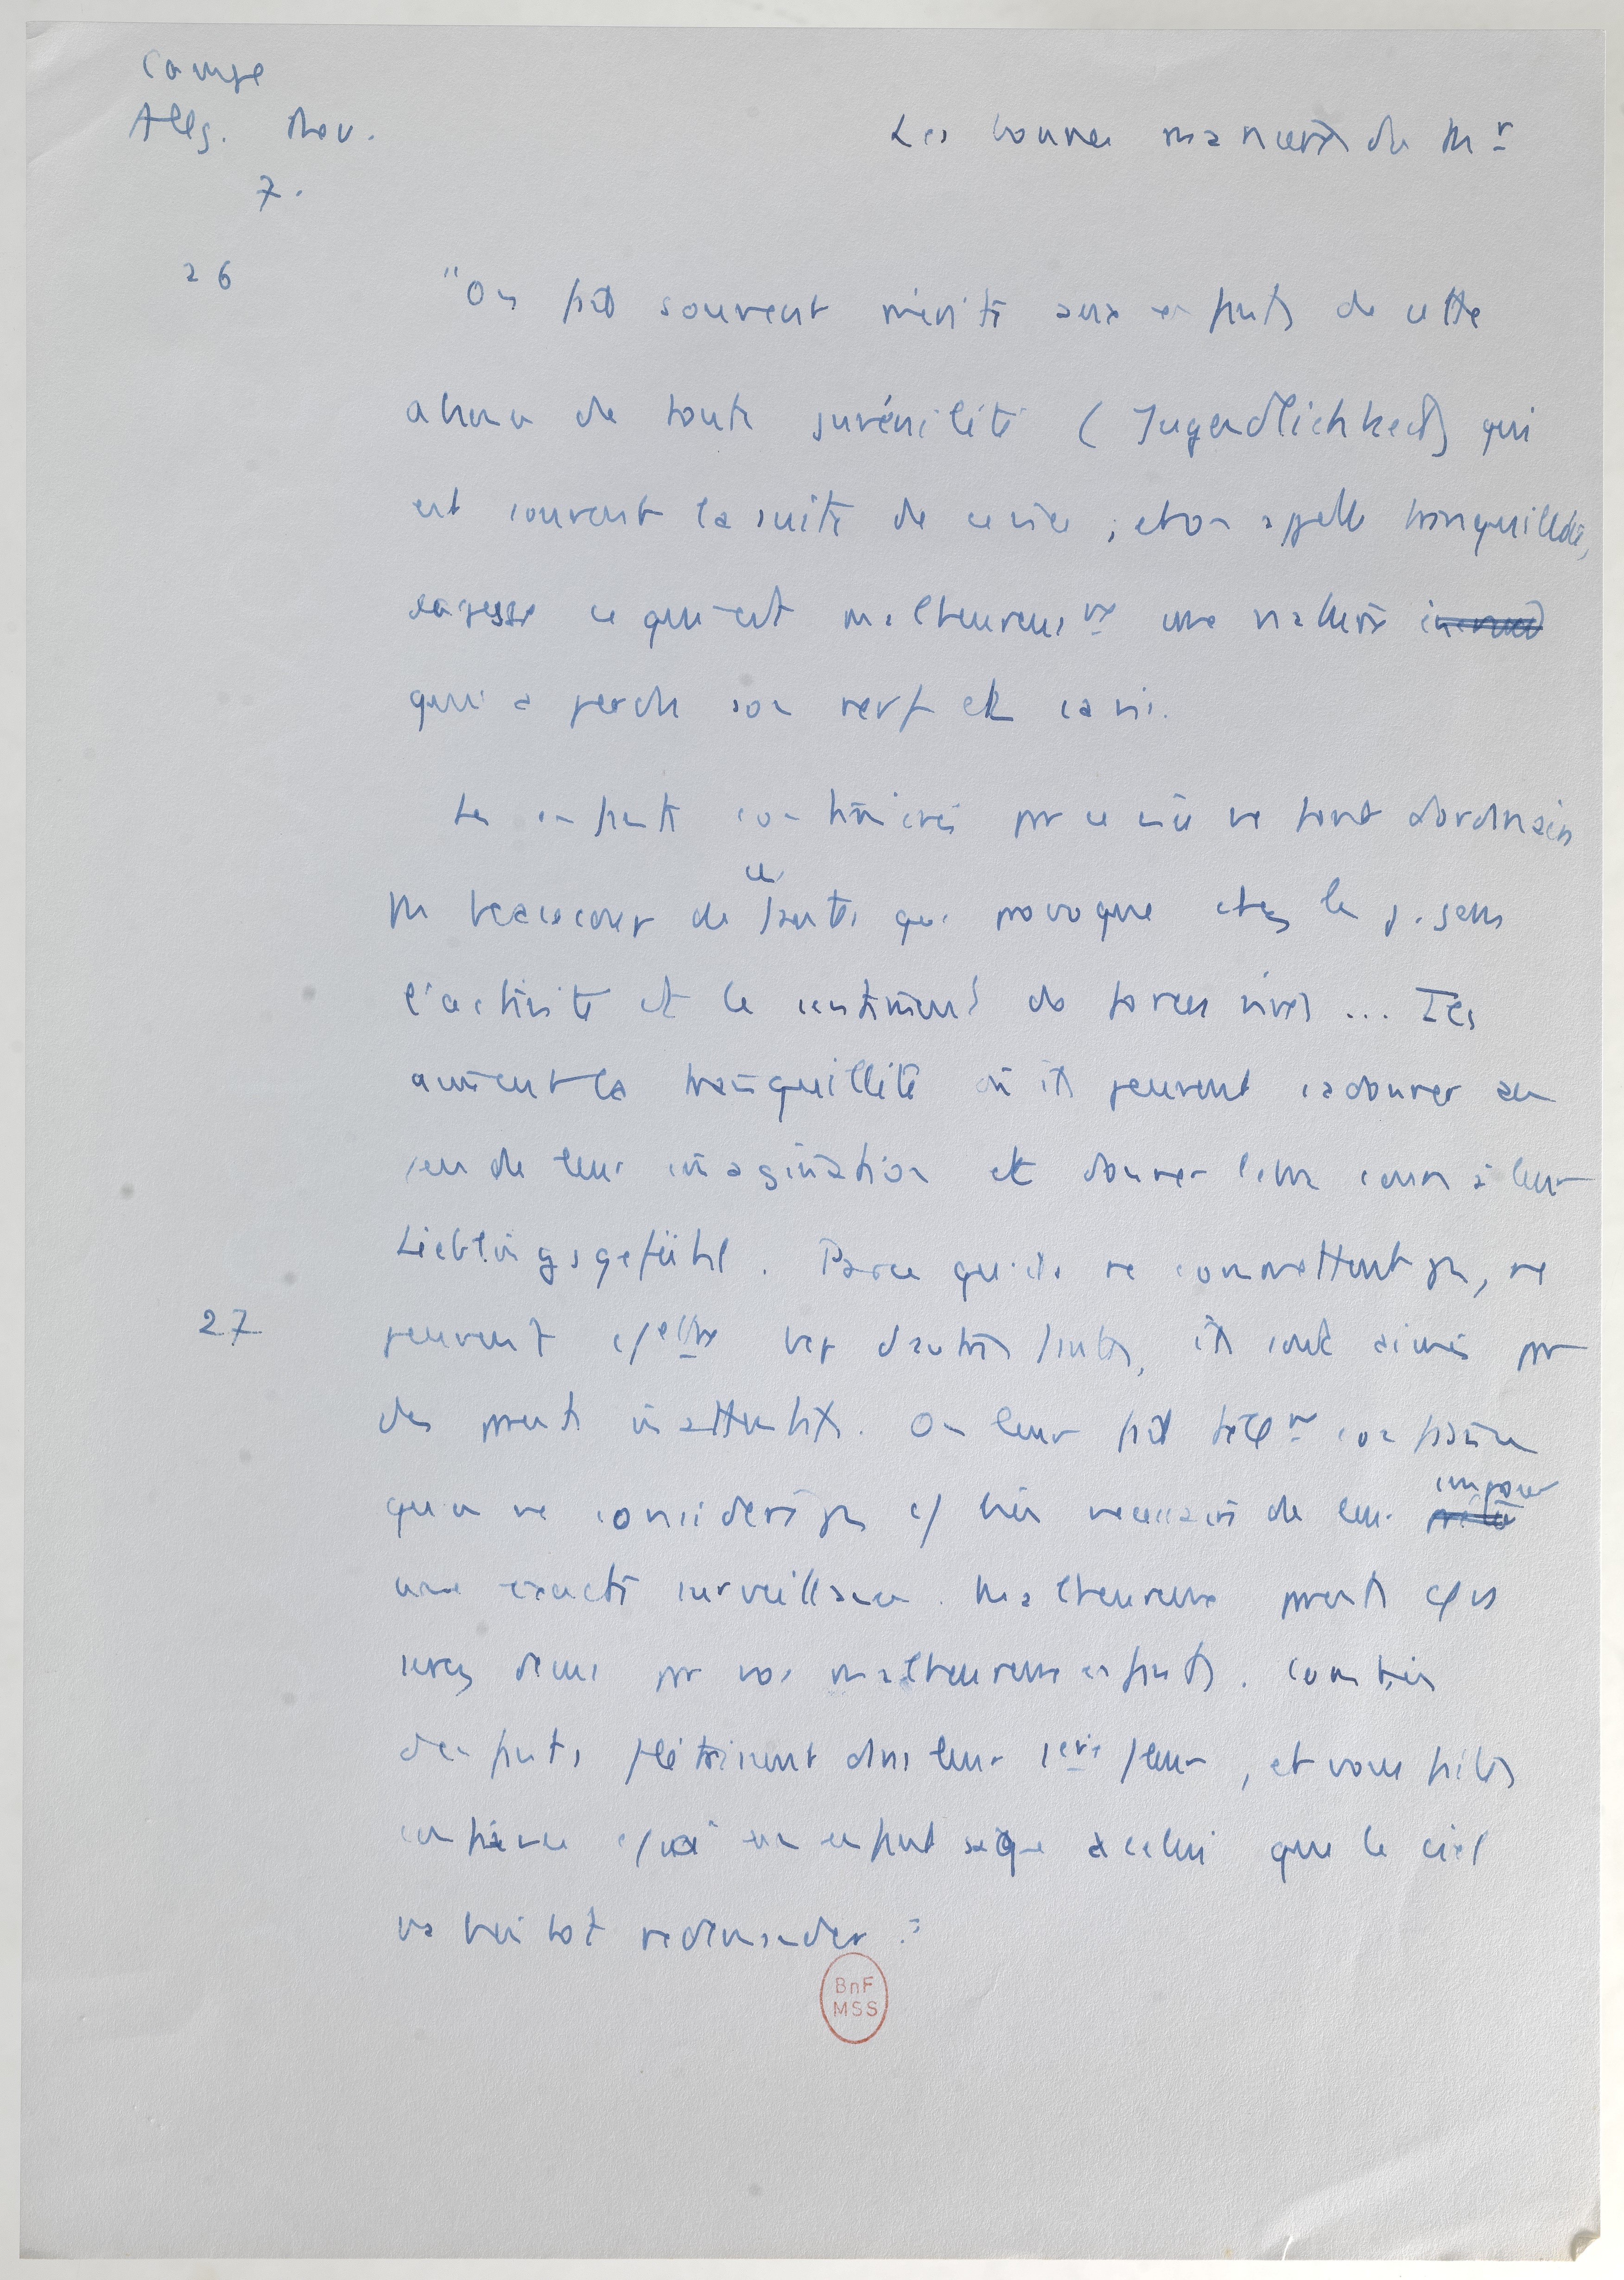 Campe
Allg. Rev.
7.
Les bonnes manières de Mr
26
"On fait souvent mérite aux enfants de cette
absence de toute juvénilité (Jugendlichkeit) qui
est souvent la suite de ce vice ; et on appelle tranquillité,
sagesse ce qui est malheureusmt une nature
qui a perdu son nerf et sa vie.
Les enfants contaminés par ce vice ne font d'ordinaire
pas beaucoup de ces fautes que provoque chez les j. gens
l'activité et le sentiment de forces vives ... Ils
aiment la tranquillité où ils peuvent s'adonner au
jeu de leur imagination et donner libre cours à leur
Lieblingsgefühl. Parce qu'ils ne commettent pas, ne
27
peuvent c/ettre bcp d'autres fautes, ils sont aimés par
des parents inattentifs. On leur fait tellmt confiance
qu'on ne considère pas c/ bien nécessaire de leur imposer
une exacte surveillance. Malheureux parents que vs
serez déçus par vos malheureux enfants. Combien
d'enfants flétrissent dans leur 1ère fleur, et vous faites
confiance c/ à un enfant sage à celui que le ciel
va bientôt redemander :
BnF
MSS